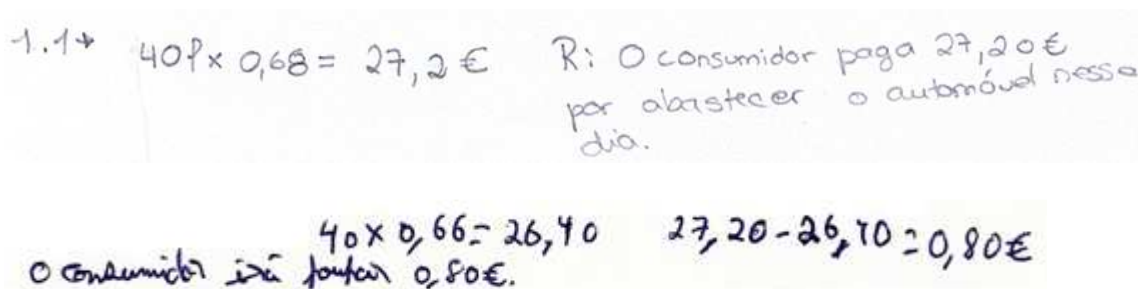 1.1→ 40l x 0,68 = 27,2 € R: O consumidor paga 27,20€
por abastecer o automóvel nesse
dia.
40 x 0,66 = 26,40 27,20 - 26,40 = 0,80€
O consumidor irá poupar 0,80€.